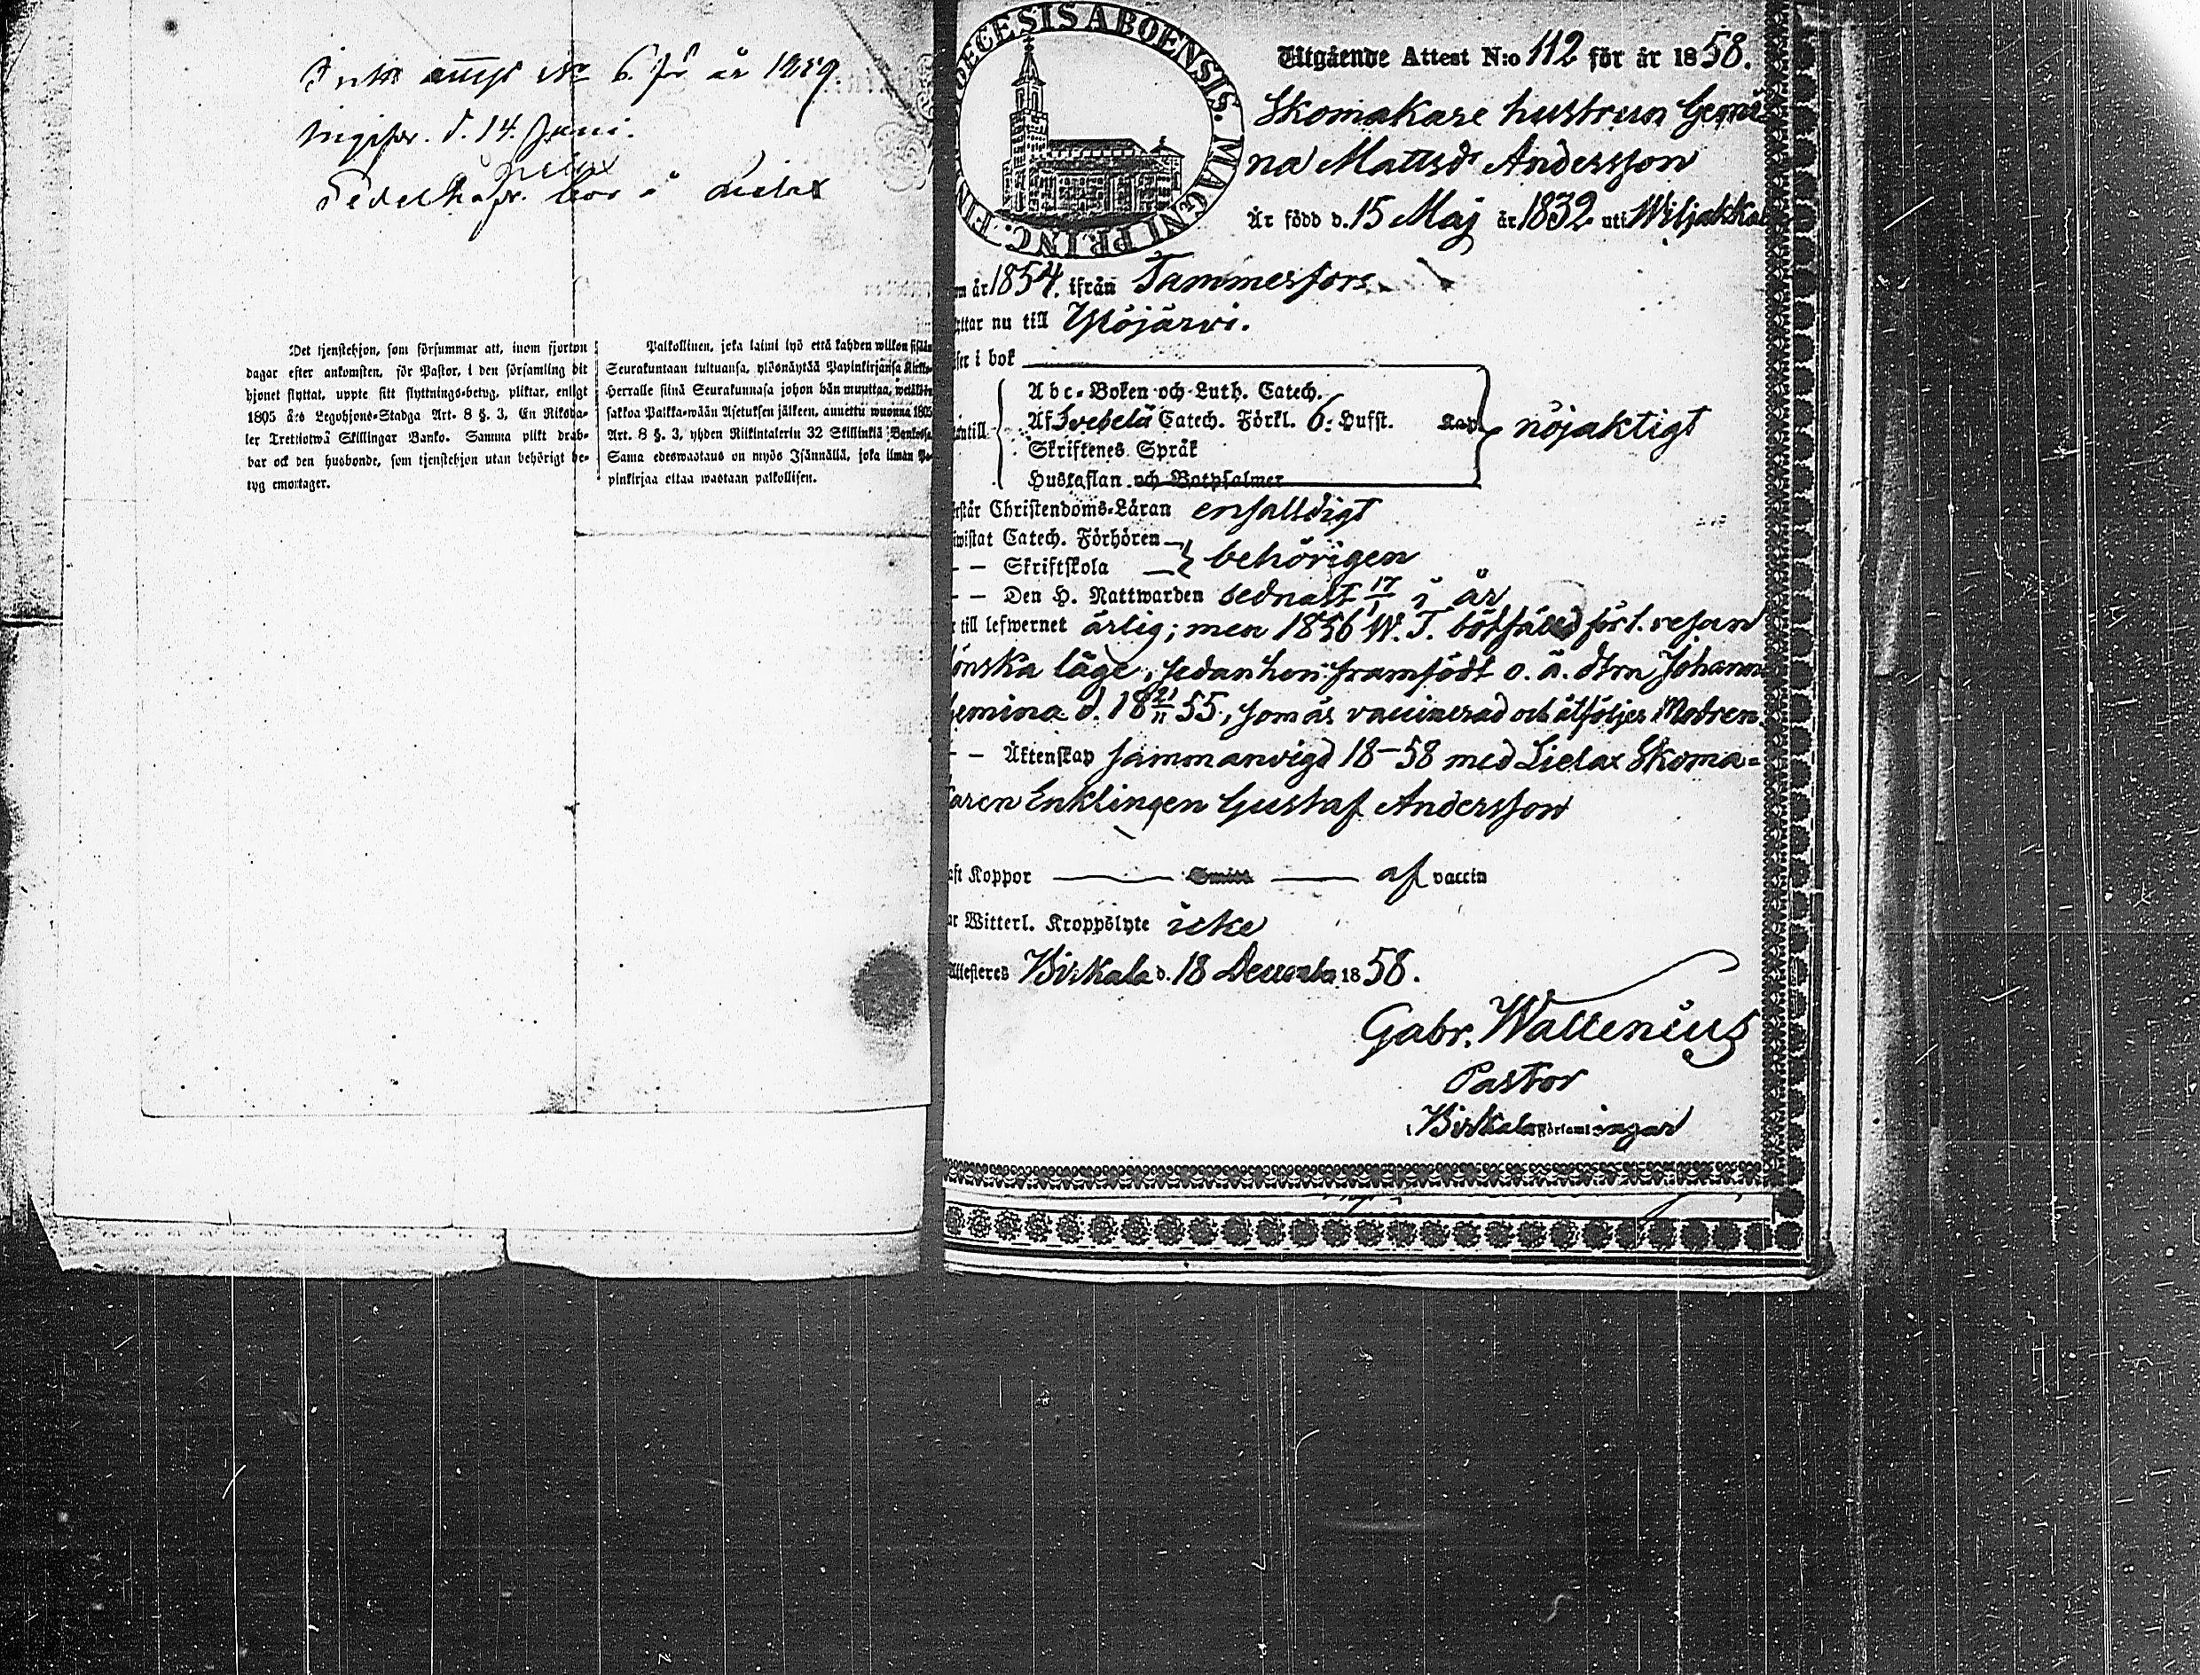 N:o 6 för år 1859.
d. 14 Juni.
Lielax
Det tjenstehjon, som försummar att, inom fjorton
dagar efter ankomsten, för Pastor, i den församling dit
hjonet flyttat, uppte sitt flyttnings-betyg, pliktar, enligt
1805 års Legohjons-Stadga Art. 8 §. 3, En Riksda-
ler Trettiotwå Skillingar Banko. Samma plikt drab-
bar ock den husbonde, som tjenstehjon utan behörigt be-
tyg emottager.
Palkollinen, joka laimi lyö että kahden wiikon sisään
Seurakuntaan tultuansa, ylösnäytää Papinkirjansa Kirkko-
Herralle siinä Seurakunnasa johon hän muuttaa, wetäköön
sakkoa Palkka-wään Asetuksen jälkeen, annettu wuonna 1805
Art. 8 §. 3, yhden Riikintalerin 32 Skillinkiä Bankosa.
Sama edeswastaus on myös Isännällä, joka ilman Pa-
pinkirjaa ottaa wastaan palkollisen.
DECESIS ABOENSIS. MAGNI PRINC. FIN
Utgående Attest N:o 112 för år 1858.
Skomakare hustrun Gemi
na Mattsdr Andersson
Är född d. 15 Maj år 1832 uti Wiljakkala
m år 1854. ifrån Tammerfors
ttar nu till Ylöjärvi.
ser i bok
Abc-Boken och Luth. Catech.
Af Svebelii Catech. Förkl. 6: Hufst. Kap.
antill
Skriftenes Språk
Hustaflan och Botpsalmer
nöjaktigt
rstår Christendoms-Läran enfalldigt
wistat Catech. Förhören
— — Skriftskola behörigen
— — Den H. Nattwarden sednast 17/1 i år
till lefwernet ärlig; men 1856 W. T. bötfälld för 1. resan
lönska läge, sedan hon framfödt o. ä. dtrn Johanna
Gemina d. 18 21/11 55, som är vaccinerad och åtföljer Modren.
— — Äktenskap sammanvigd 18–58 med Lielax Skoma-
karen Enklingen Gustaf Andersson
aft Koppor — Smitt — af vaccin
ar Witterl. Kroppslyte icke
Attesteres Birkala d. 18 December 1858.
Gabr. Wallenius
Pastor
i Birkala Församlingar